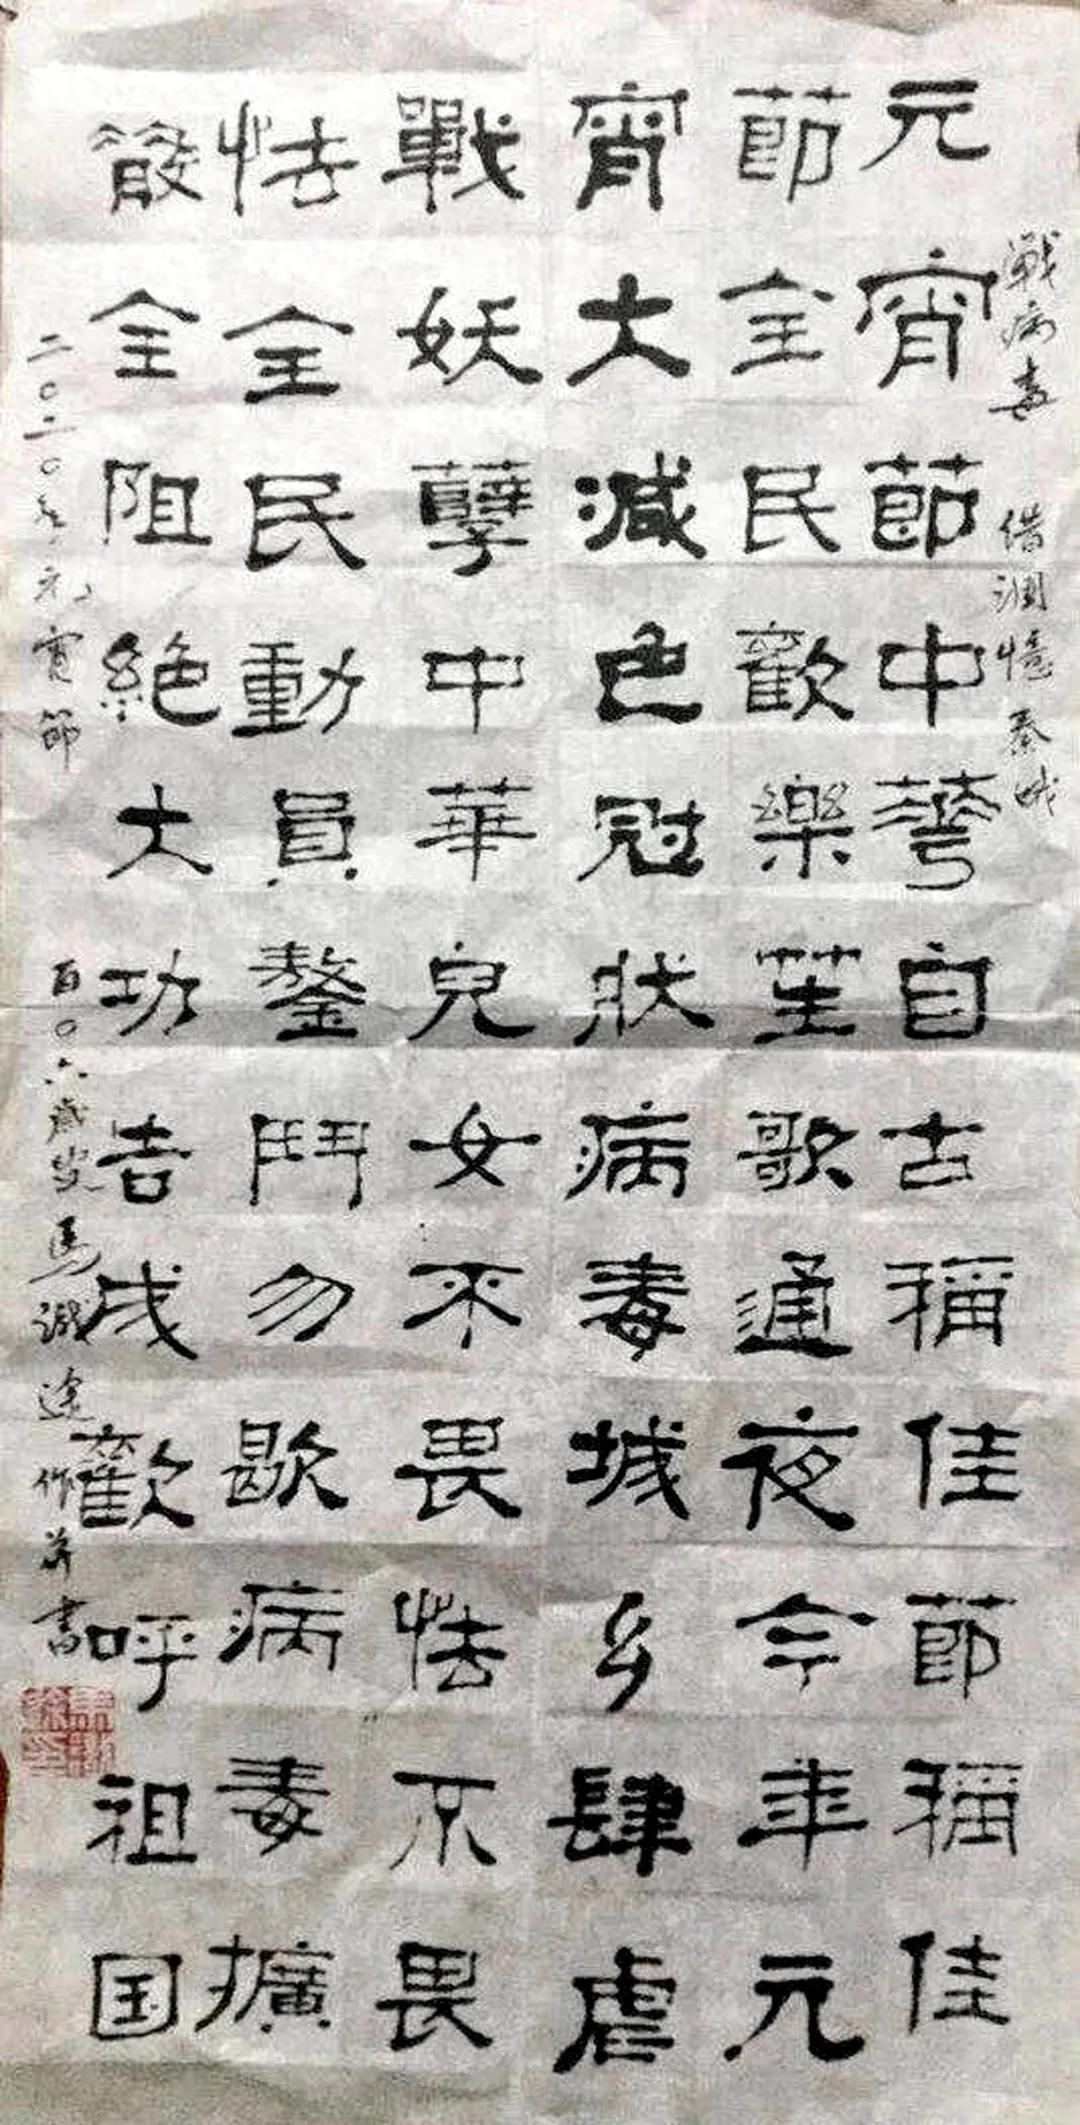 戰病毒 借調憶秦娥
元宵節中華自古稱佳節稱佳
節全民歡樂笙歌通夜今年元
宵大減色冠狀病毒城乡肆虐
戰妖孽中華兒女不畏怯不畏
怯全民動員鏊鬥勿歇病毒擴
散全阻絕大功告成歡呼祖国
二〇二〇年元宵節 百〇六歲叟馬識途作并書